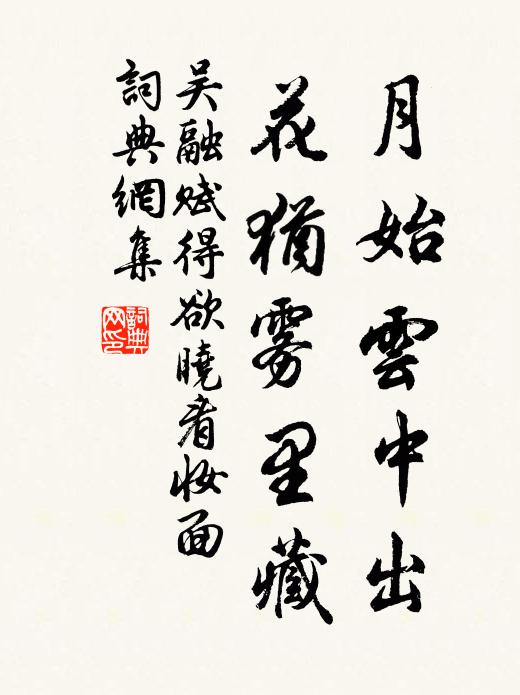 月始雲中出
花猶雾里藏
吴融赋得欲曉看妆面
詞典網集
詞典网印